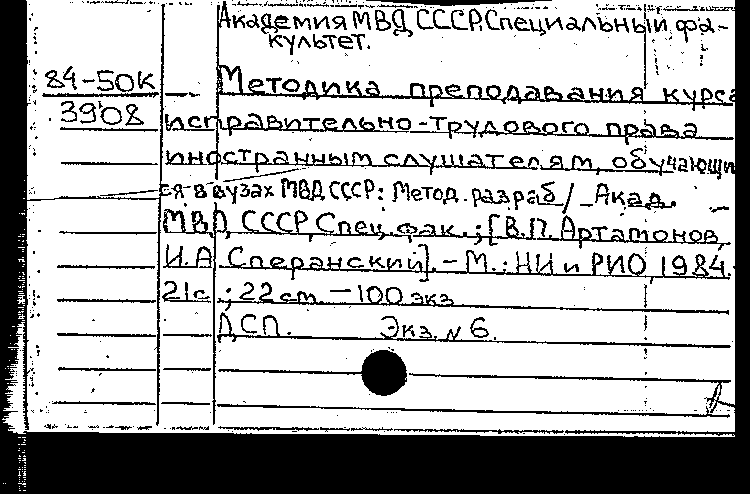 Академия МВД СССР. Специальный фа-
культет.
84-50К
3908
Методика преподавания курса
исправительно-трудового права
иностранным слушателям, обучающи
ся в вузах МВД СССР: Метод. разраб / Акад.
МВД СССР, Спец. фак.; [В.П. Артамонов,
И.А. Сперанский]. - М.: НИ и РИО, 1984.
21с.; 22 см. - 100 экз
ДСП. Экз. № 6.